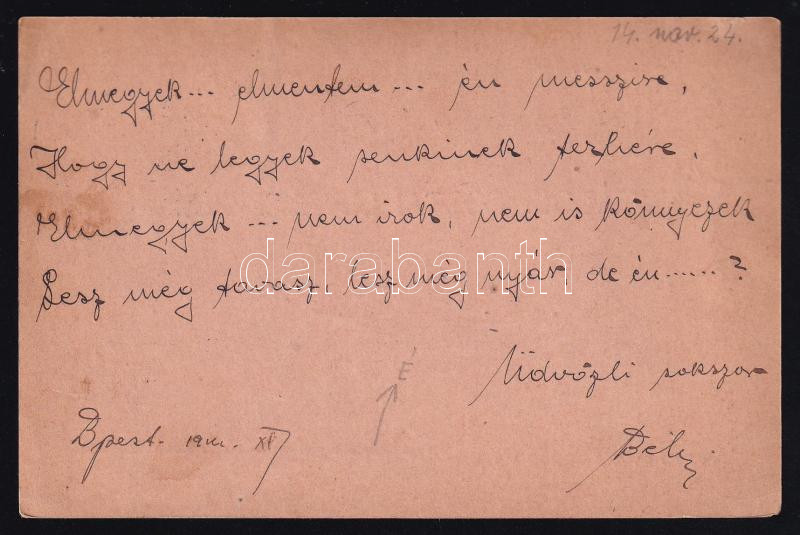 14. nov. 24.
Elmegyek... elmentem... én messzire,
Hogy ne legyek senkinek terhére.
Elmegyek... nem irok, nem is könnyezek
darabanth
Lesz még tavasz, lesz még nyár, de én......?
É
Üdvözli sokszor
Bpest.